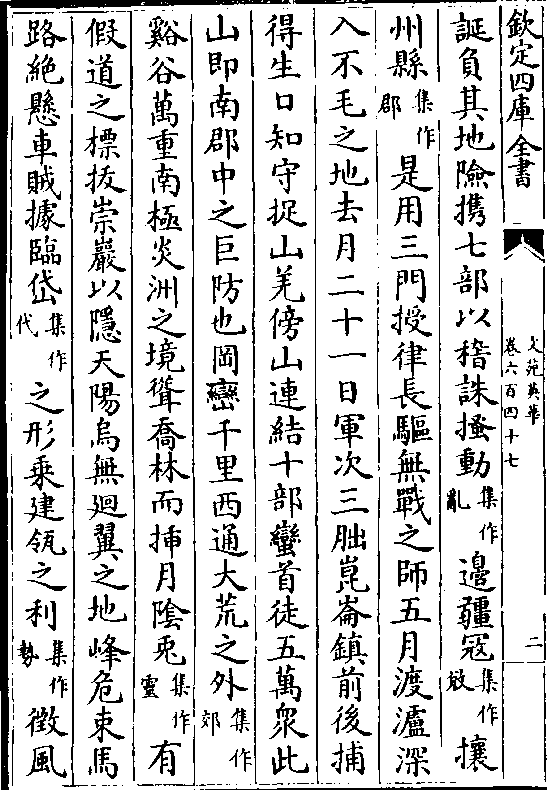 欽定四庫全書
文苑英華
卷六百四十七
二
誕負其地險攜七部以稽誅搔動集作亂邊疆寇集作敓攘
州縣集作郡是用三門授律長驅無戰之師五月渡瀘深
入不毛之地去月二十一日軍次三朏崑崙鎮前後捕
得生口知守捉山羌傍山連結十部蠻首徒五萬衆此
山即南郡中之巨防也岡巒千里西通大荒之外集作郊
谿谷萬重南極炎洲之境聳喬林而插月陰兎集作靈有
假道之標拔崇巖以隱天陽烏無迴翼之地峰危束馬
路絶懸車賊據臨岱集作代之形乘建瓴之利集作勢徴風